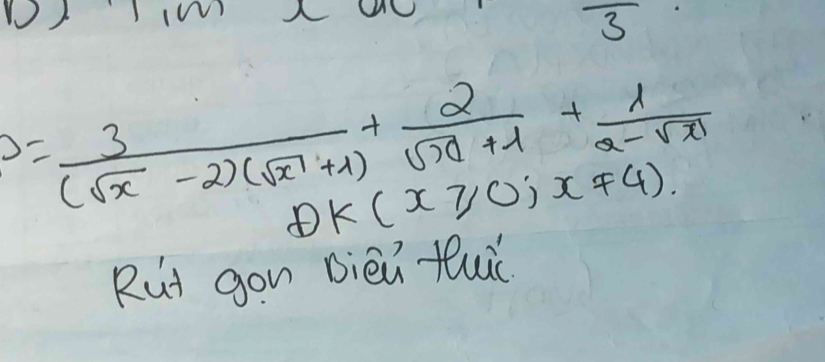 B). Tìm x để 3.
P = 3/((√x - 2)(√x + 1)) + 2/(√x + 1) + 1/(2 - √x)
ĐK (x ≥ 0; x ≠ 4).
Rút gọn biểu thức.